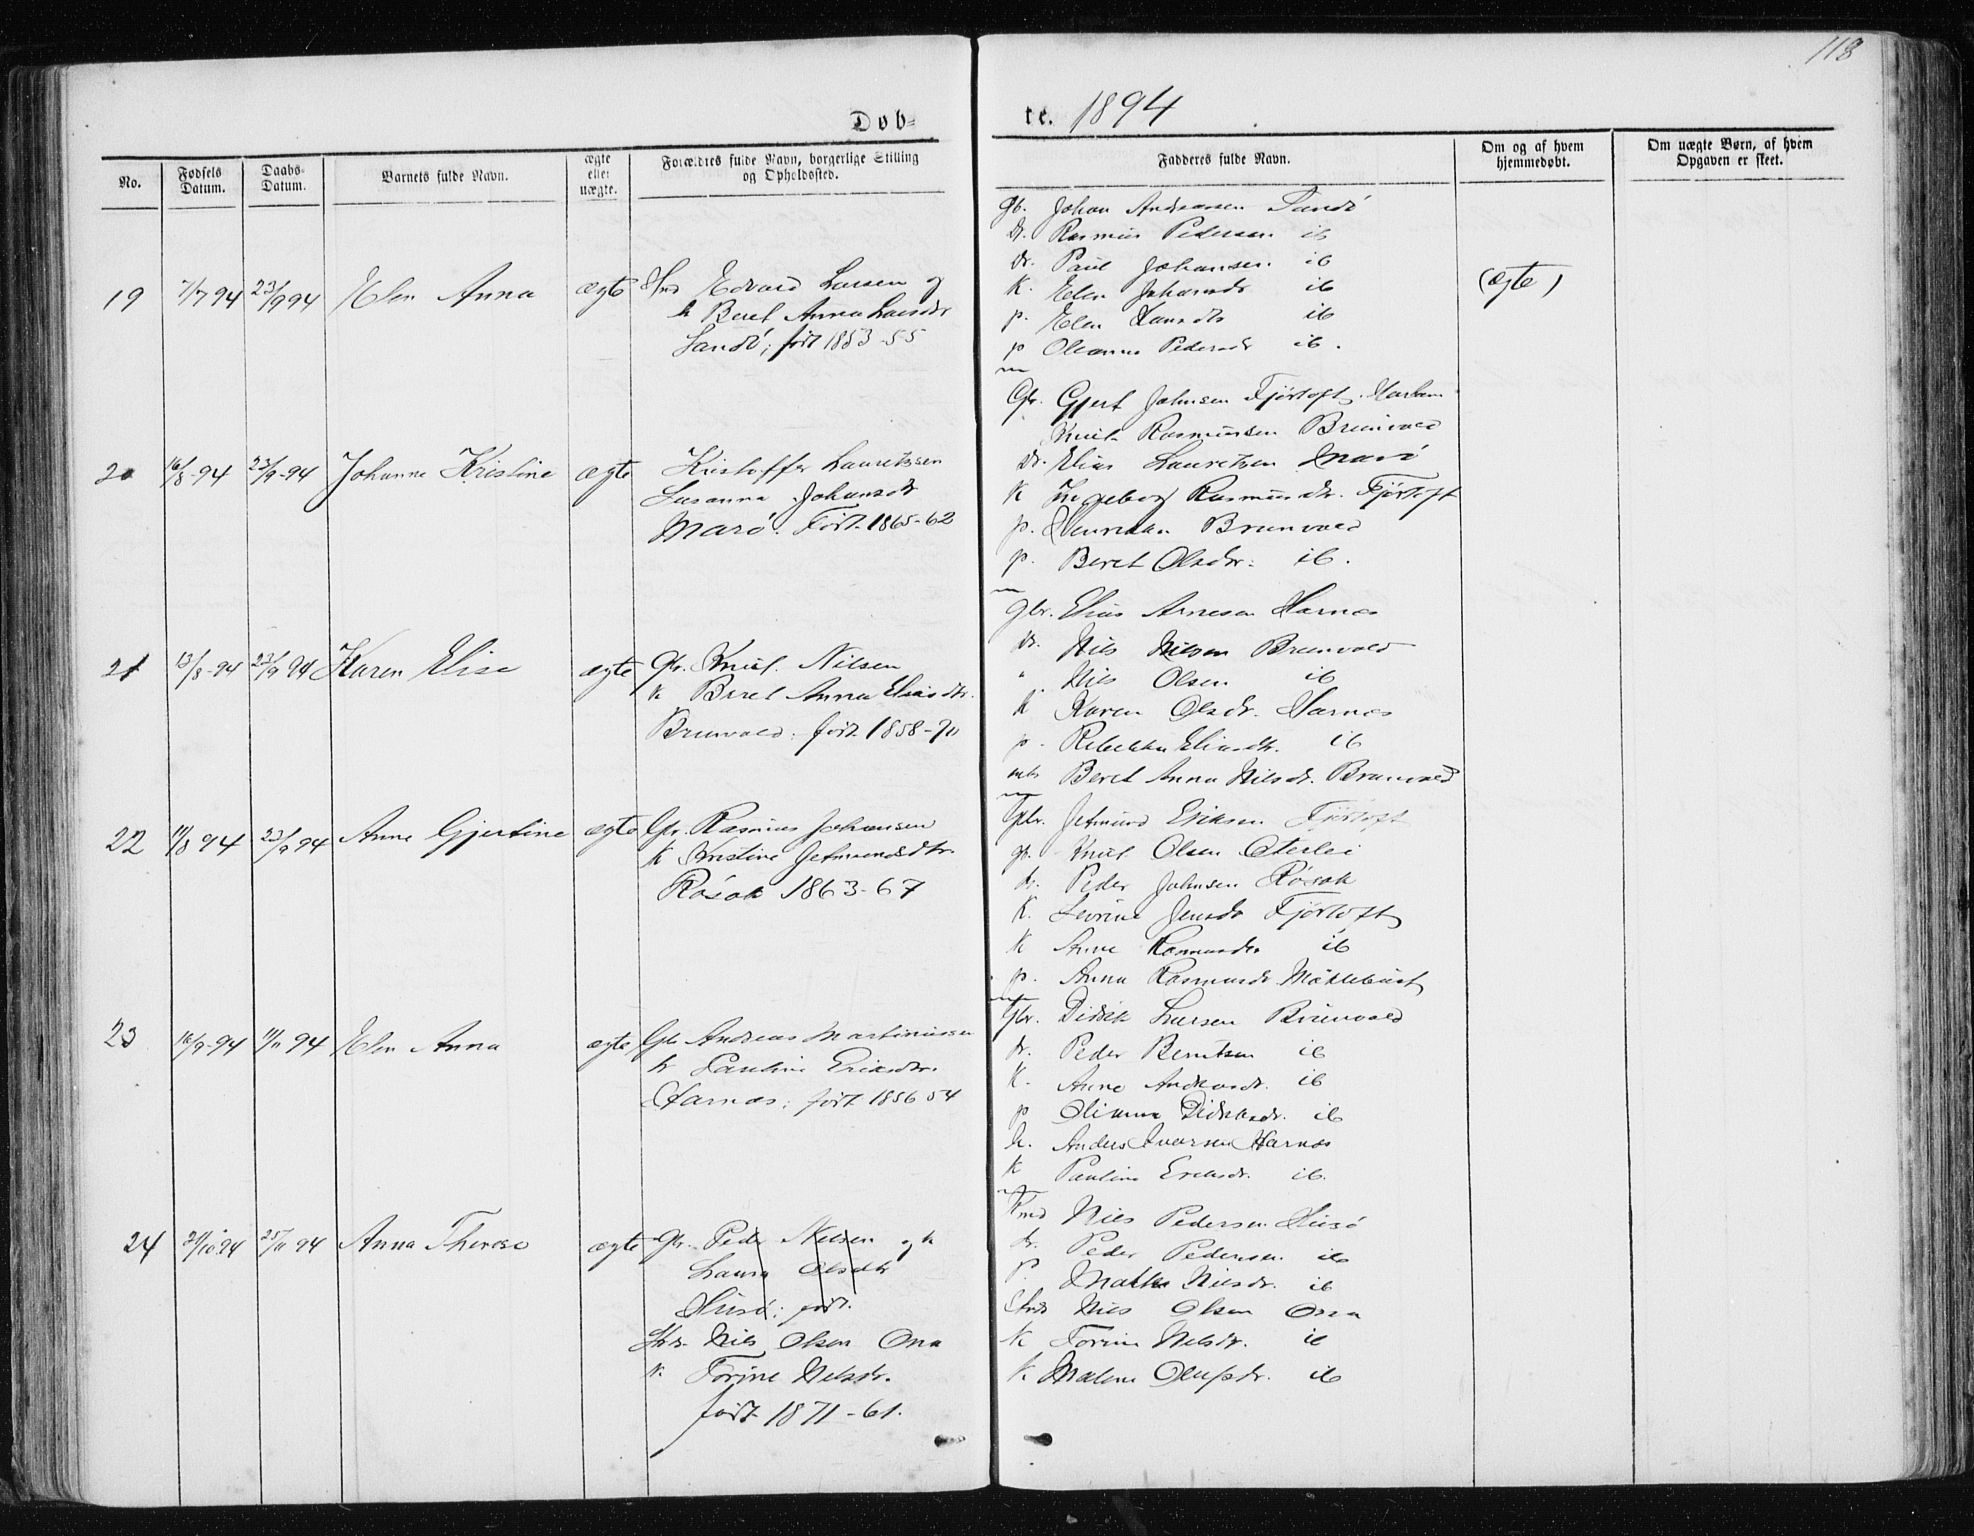 118
Døb-
te. 1894
No.
Fødsels Datum.
Daabs-Datum.
Barnets fulde Navn.
ægte eller uægte.
Forældres fulde Navn, borgerlige Stilling og Opholdssted.
Fadderes fulde Navn.
Om og af hvem hjemmedøbt.
Om uægte Børn, af hvem Opgaven er skeet.
19 7/7 94 23/9 94 Elen Anna ægte Edvard Larsen og
k Beret Anna Larsdtr
Sandö; født 1853-55
gb. Johan Andreasen Sandö
dr. Rasmus Pedersen ib
dr. Paul Johansen ib
k. Elen Johansdr ib
p. Elen ib
p Oleanna Pedersdr ib.
(ægte)
20 16/8-94 23/9-94 Johanna Kristine ægte Kristoffer Lauritssen
Susanna Johansdr
Marö. Født. 1865-62
Gbr. Gjert Johnsen Fjörtoft, Harham
Knut Rasmussen Brunvold
dr. Elias Lauritsen Marö
K Ingeborg Rasmusdr. Fjörtoft
p. Brunvold
p. Beret Olsdtr: ib.
21 13/8-94 23/9 94 Karen Elise ægte Gbr. Knut Nilsen
k Beret Anna Eliasdtr.
Brunvold: født 1858-70
gbr. Elias Arnesen Harnes
dr. Nils Nilsen Brunvold
" Nils Olsen ib
K Karen Olsdr. Harnes
p. Rebekka Eliasdtr. ib
Beret Anna Nilsdr. Brunvold
22 11/8 94 23/9 94 Anne Gjertine ægte Gbr. Rasmus Johansen
k Kristine Jetmundsdtr.
Rösok 1863-67
Gbr. Jetmund Eriksen Fjörtoft
gb. Knut Olsen Oterlei
dr. Peder Johnsen Rösok
K. Sevrine Jensdr Fjörtoft
K Anne Rasmusdr ib
p. Anna Rasmusdr Möklebust
23 16/9-94 11/11 94 Elen Anna ægte Gbr Andreas Martinussen
k Pauline Eriksdtr.
Harnes; født 1856 54
Gbr. Didrik Larsen Brunvold
dr. Peder Berntsen ib
K. Anne Andreasdr. ib
p Olianna Didriksdr. ib
Anders Iversen Harnes
K Pauline Eriksdr. ib.
24 21/10 94 25/11 94 Anna Therese ægte Gbr. Peder Nilsen og k
Laura Olsdtr
Husö; født.
Nils Olsen Ona
K. Torine Nilsdr.
født 1871-61.
Nils Pedersen Husö
dr. Peder Pedersen ib
p. Nilsdr. ib
Nils Olsen Ona
K Torine Nilsdr. ib
K. Malene Olufsdr. ib